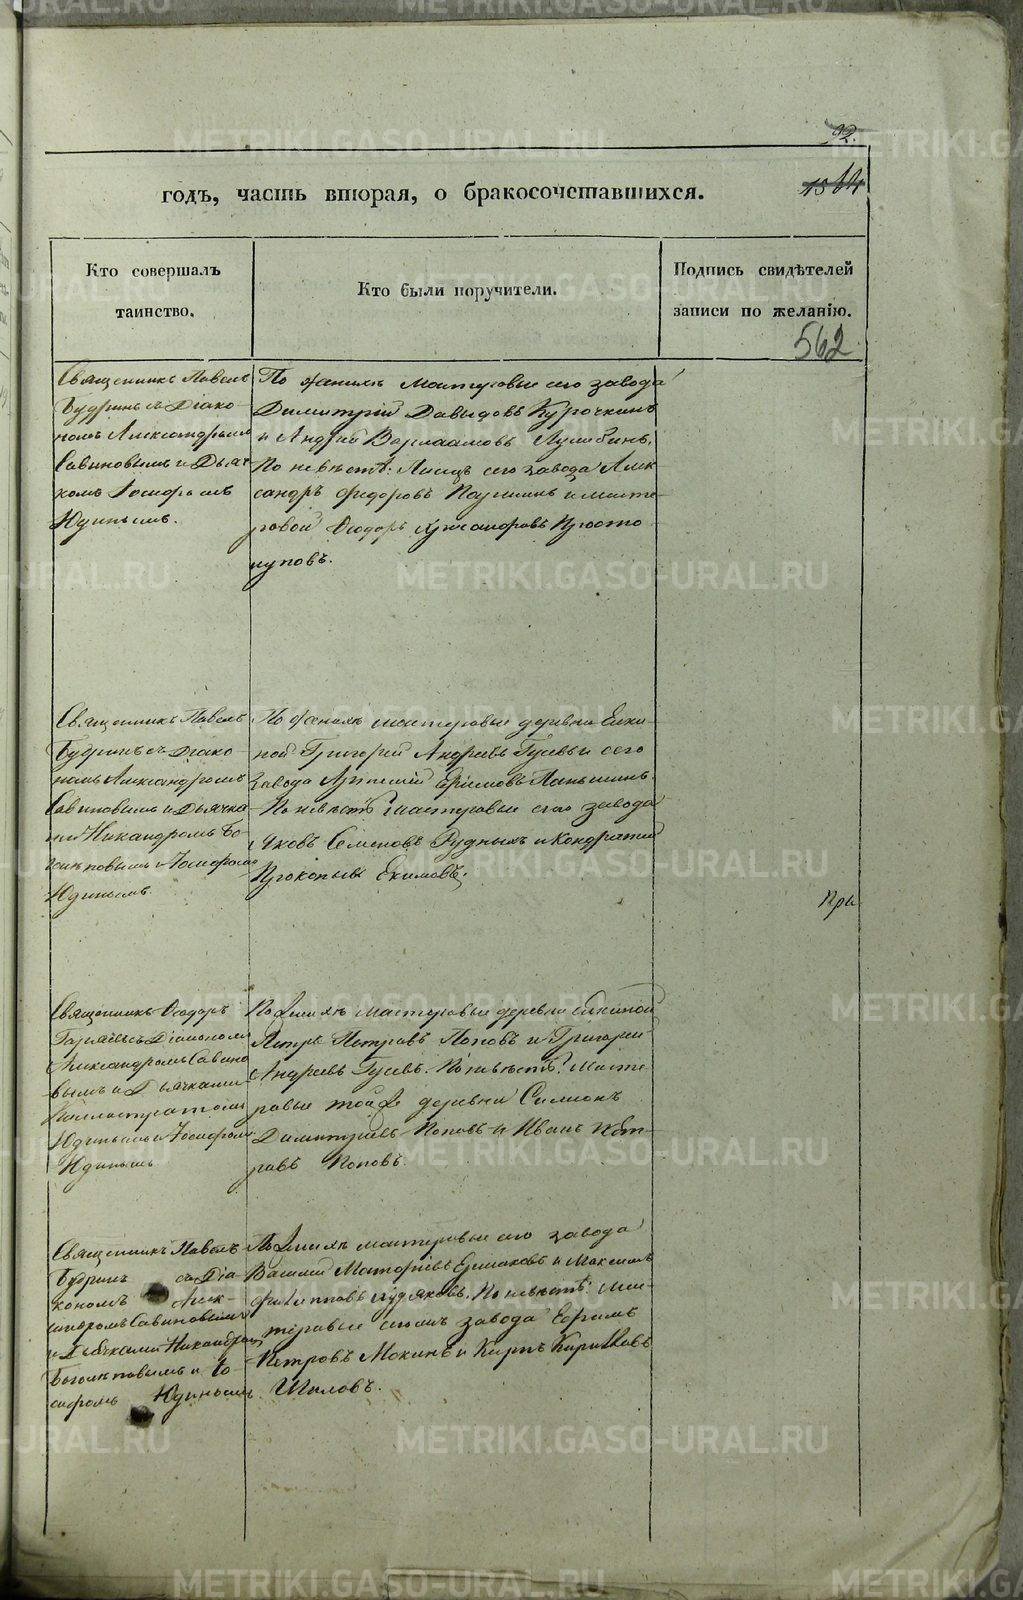 92.
годъ, часть вторая, о бракосочетавшихся.
Кто совершалъ
таинство.
Кто были поручители.
Подпись свидѣтелей
записи по желанію.
562
Священникъ Павелъ
Будринъ съ Діако-
номъ Александромъ
Савиновымъ и Дьяч-
комъ Іосифомъ
Юдинымъ.
По женихѣ мастеровые сего завода
Димитрій Давыдовъ Курочкинъ
и Андрей Варлаамовъ
По невѣстѣ: Писецъ сего завода Алек
сандръ Федоровъ и масте-
ровой Ѳеодоръ
Священникъ Павелъ
Будринъ съ Діако-
номъ Александромъ
Савиновымъ и Дьячка-
ми Никандромъ Бо-
и Іосифомъ
Юдинымъ.
По женихѣ мастеровые деревни Елки-
ной Григорій Андреевъ Гусевъ и сего
завода Паньшинъ.
По невѣстѣ: мастеровые сего завода
Яковъ Семеновъ Рудныхъ и Кондратій
Прокопьевъ Екимовъ.
При
Священникъ Ѳеодоръ
съ Діакономъ
Александромъ Савино
вымъ и Дьячками
Каллистратомъ
Юдинымъ и Іосифомъ
Юдинымъ
По женихѣ мастеровые деревни Елкиной
Петръ Петровъ Поповъ и Григорій
Андреевъ Гусевъ. По невѣстѣ: масте
ровые той же деревни Симеонъ
Димитріевъ Поповъ и Иванъ Пет-
ровъ Поповъ.
Священникъ Павелъ
Будринъ съ Діа-
кономъ Алек-
сандромъ Савиновымъ
и Дьячками Никандромъ
и Іо-
сифомъ Юдинымъ.
По женихѣ мастеровые сего завода
Василій Ермаковъ и Максимъ
Филипповъ Худяковъ. По невѣстѣ: мас-
теровые сего завода Ефремъ
Петровъ Мокинъ и Кирилловъ
Шиловъ.
METRIKI.GASO-URAL.RU